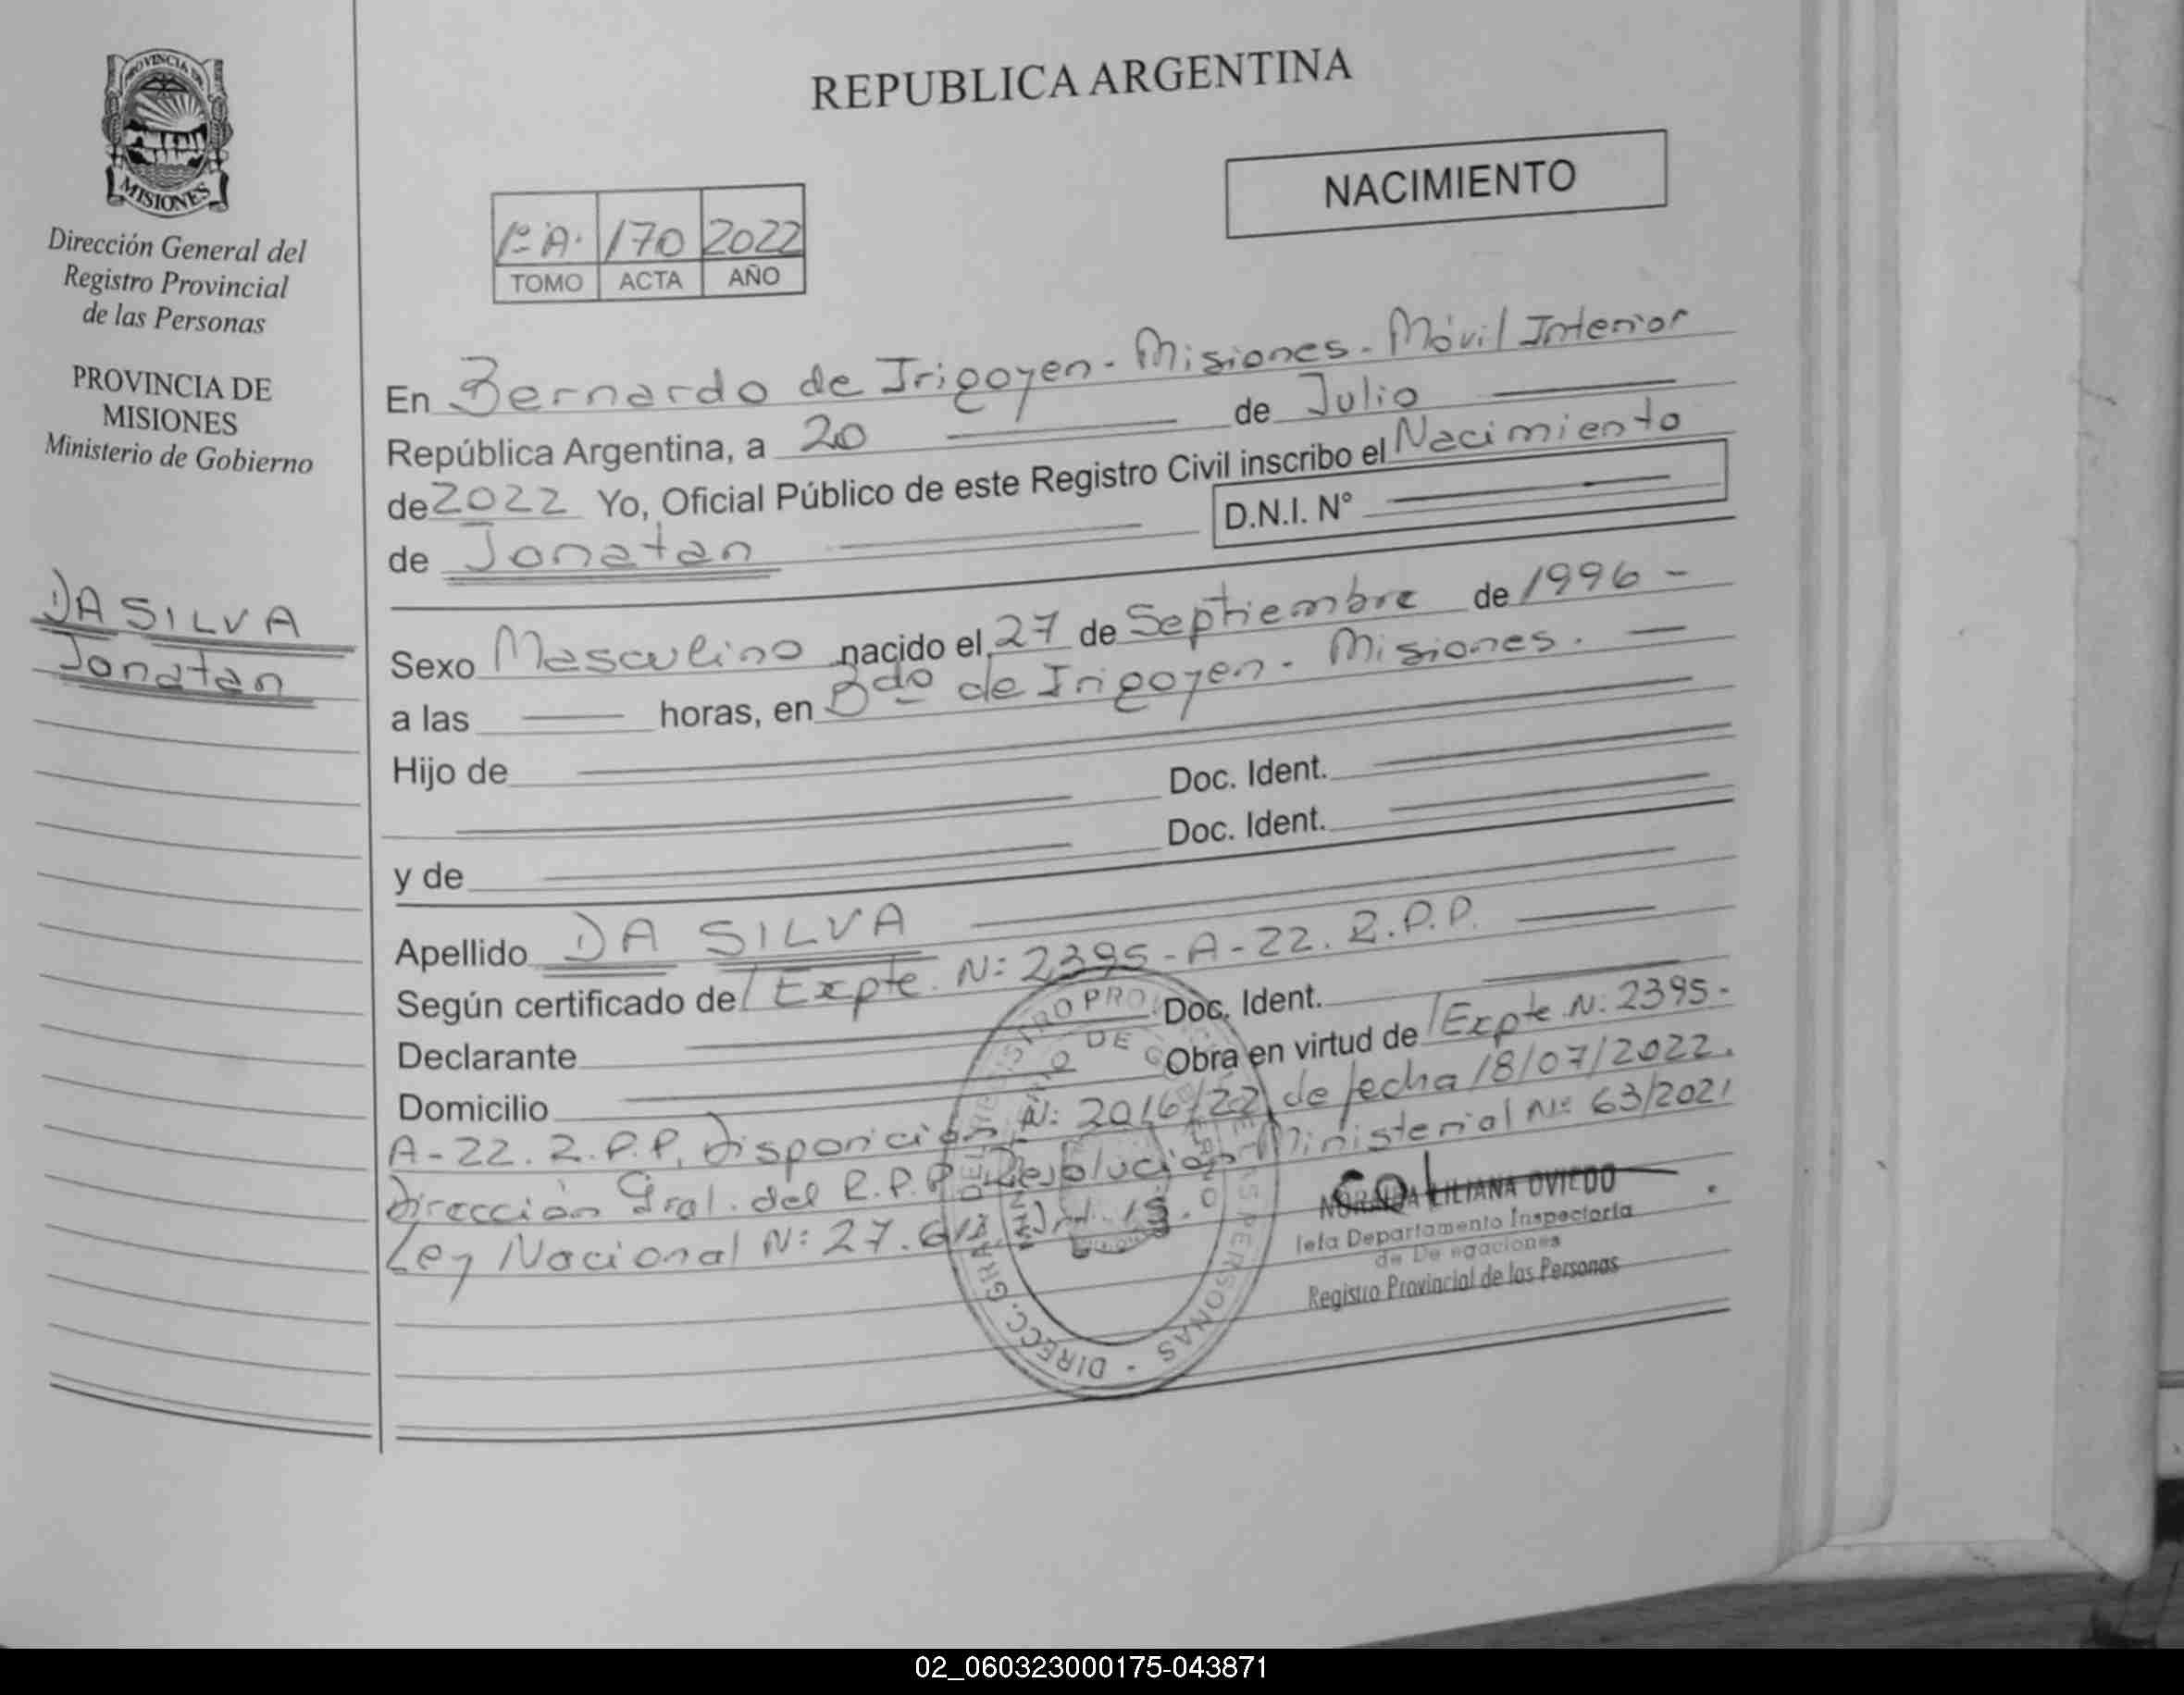 PROVINCIA DE
MISIONES
Dirección General del
Registro Provincial
de las Personas
PROVINCIA DE
MISIONES
Ministerio de Gobierno
DA SILVA
Jonatan
REPUBLICA ARGENTINA
NACIMIENTO
1º A. 170 2022
TOMO ACTA AÑO
En Bernardo de Irigoyen - Misiones - Móvil Interior
República Argentina, a 20 de Julio
de 2022 Yo, Oficial Público de este Registro Civil inscribo el Nacimiento
de Jonatan D.N.I. N°
Sexo Masculino nacido el 27 de Septiembre de 1996 -
a las horas, en Bdo de Irigoyen - Misiones. -
Hijo de
Doc. Ident.
y de Doc. Ident.
Apellido DA SILVA
Según certificado de / Expte. N: 2395 - A - 22. R.P.P.
Declarante Doc. Ident.
Domicilio Obra en virtud de / Expte N: 2395 -
A - 22. R.P.P. Disposición N: 2016/22 de fecha 18/07/2022.
Dirección Gral. del R.P.P. Resolución Ministerial Nº 63/2021
Ley Nacional N: 27.611 Art. 
DIRECC. GRAL. DEL REGISTRO PROVINCIAL DE LAS PERSONAS -
LILIANA OVIEDO
Jefa Departamento Inspectoría
de Delegaciones
Registro Provincial de las Personas
02_060323000175-043871